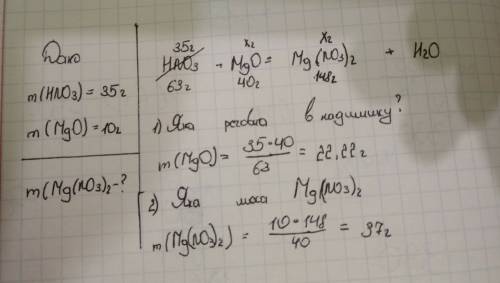 Дано
m(HNO3) = 35г
m(MgO) = 10г
m(Mg(NO3)2 - ?
35г x2 x2
HNO3 + MgO = Mg(NO3)2 + H2O
63г 40г 148г
1) Яка речовина в надлишку?
m(MgO) = 35·40 / 63 = 22,22г
2) Яка маса Mg(NO3)2
m(Mg(NO3)2) = 10·148 / 40 = 37г